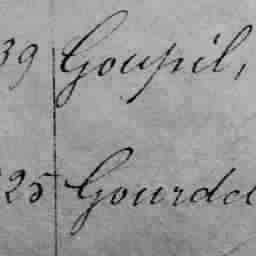 39 Goupil,
25 Gourde